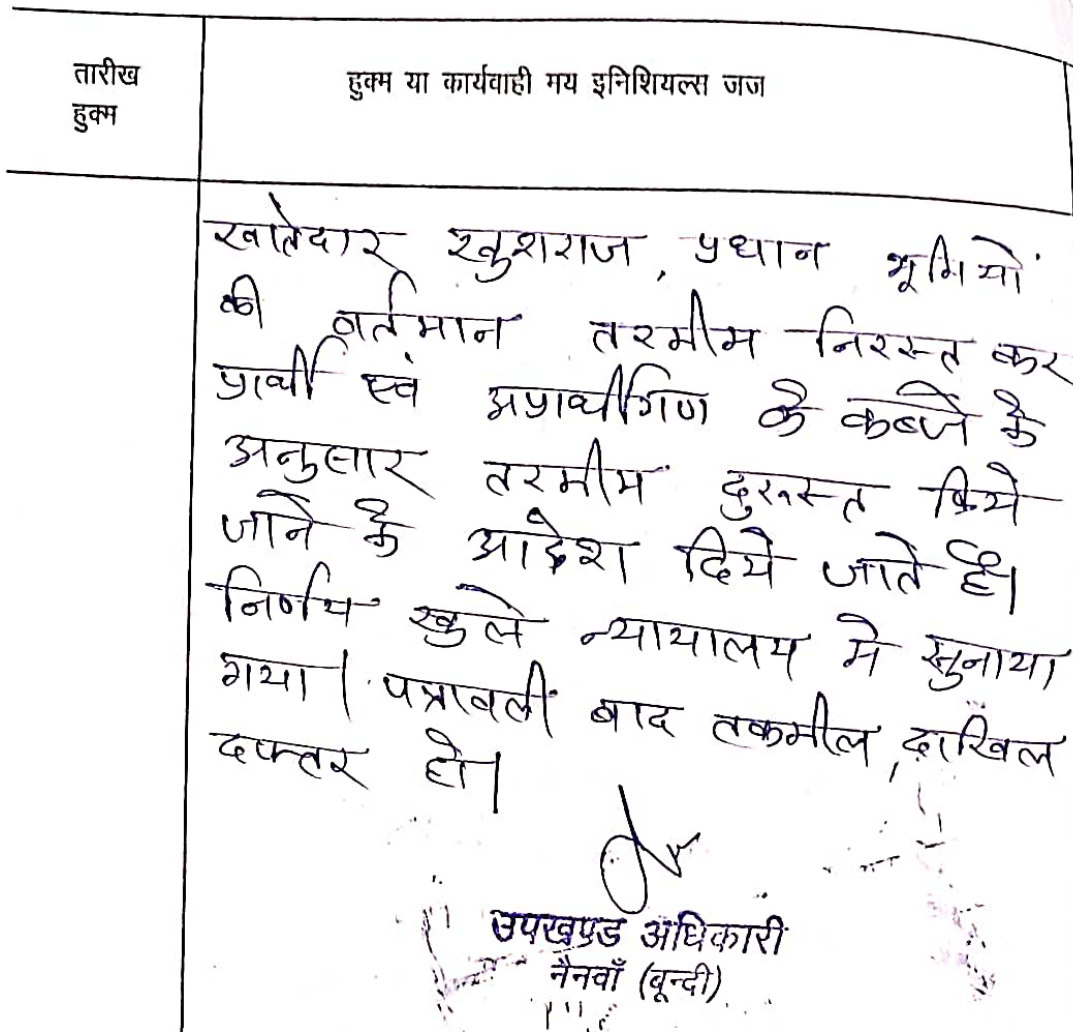 तारीख
हुक्म
हुक्म या कार्यवाही मय इनिशियल्स जज
खातेदार खुशराज, प्रधान भूमियों
की वर्तमान तरमीम निरस्त कर
प्रार्थी एवं अप्रार्थीगण के कब्जे के
अनुसार तरमीम दुरूस्त किये
जाने के आदेश दिये जाते है।
निर्णय खुले न्यायालय मे सुनाया
गया। पत्रावली बाद तकमील, दाखिल
दफ्तर हो।
उपखण्ड अधिकारी
नैनवाँ (बून्दी)